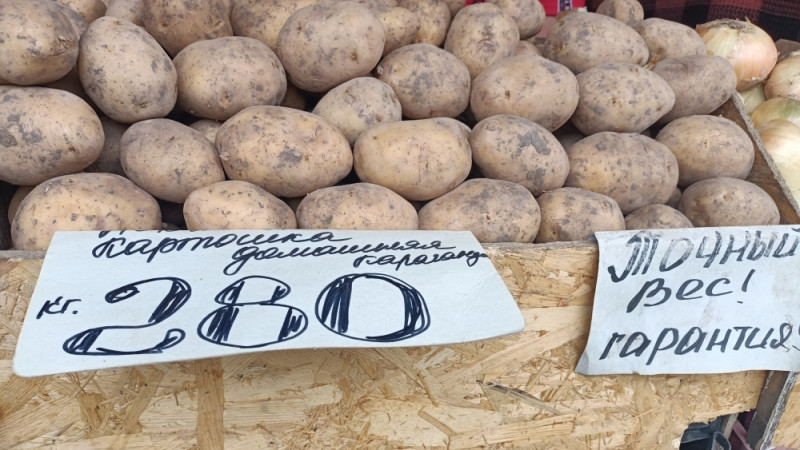 Картошка
домашняя
Караганда
кг. 280
Точный
вес!
гарантия!